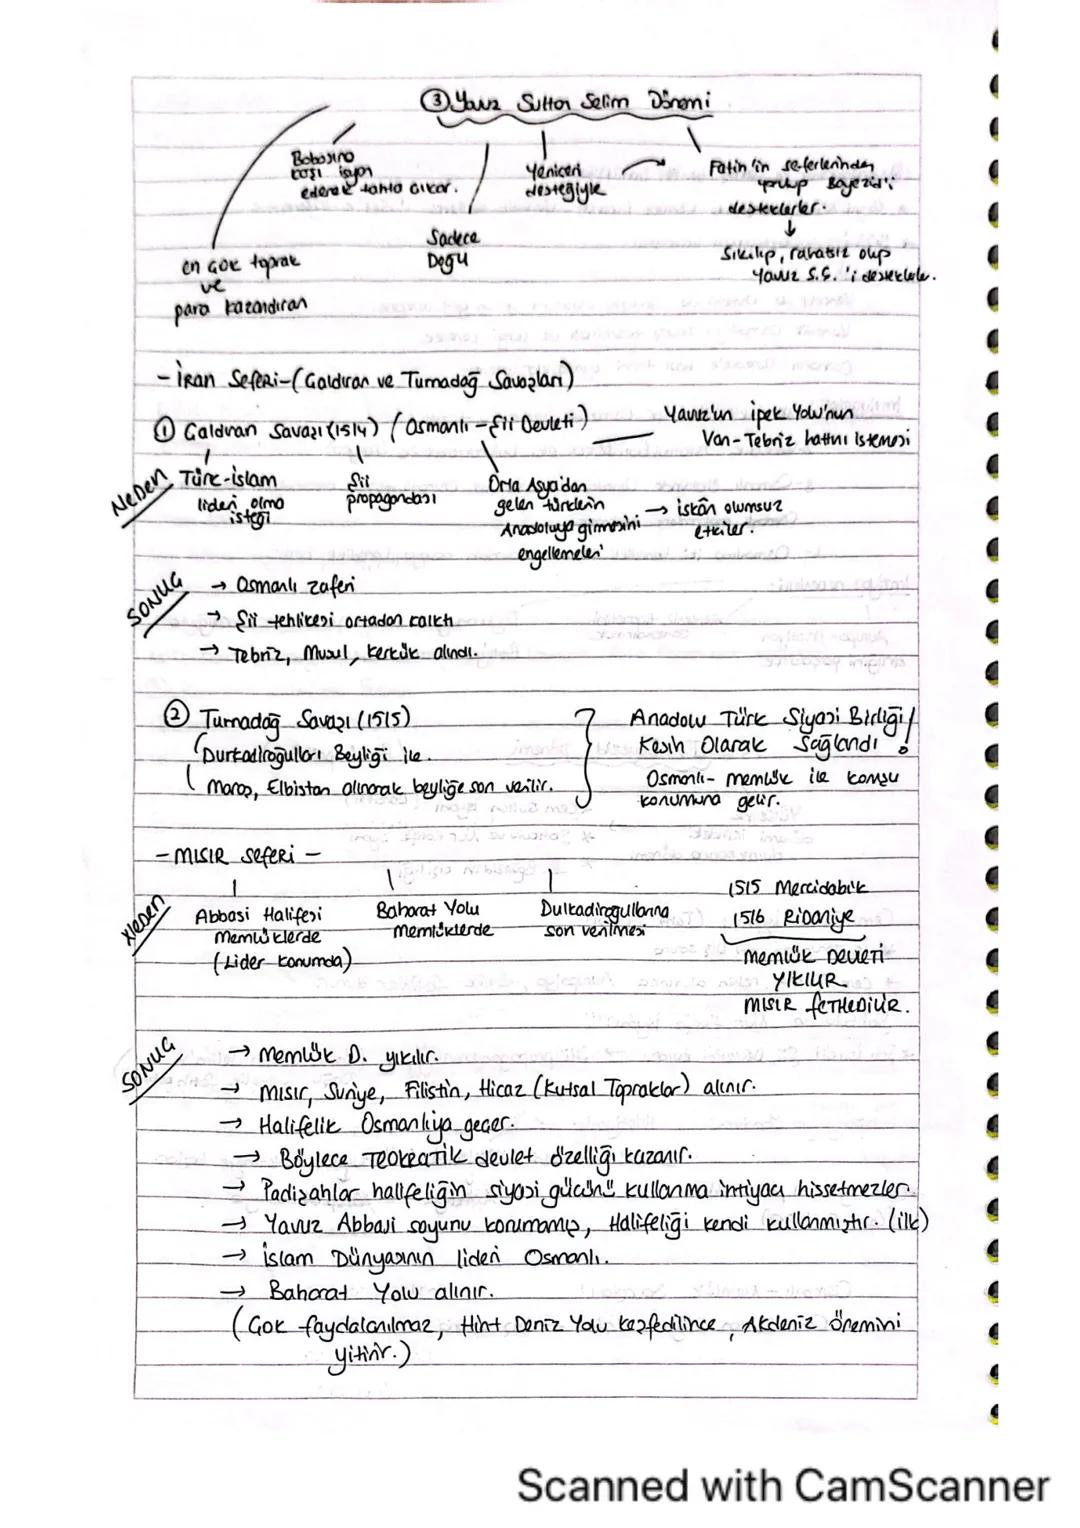 ③ Yavuz Sultan Selim Dönemi
Babasına karşı isyan ederek tahta çıkar.
Yeniçeri desteğiyle
Fatih'in seferlerinden yorulup Bayezid'i desteklerler.
↓
Sıkılıp, rahatsız olup
Yavuz S.S. 'i desteklerler.
Sadece Doğu
en çok toprak
ve
para kazandıran
- İRAN SEFERİ - (Çaldıran ve Turnadağ Savaşları)
① Çaldıran Savaşı (1514) (Osmanlı - Şii Devleti)
Yavuz'un İpek Yolu'nun
Van - Tebriz hattını istemesi
NEDEN
Türk-islam
lideri olma
isteği
Şii
propagandası
Orta Asya'dan
gelen türklerin
Anadoluya girmesini
engellemeleri
→ iskân olumsuz
etkiler.
SONUÇ
→ Osmanlı zaferi
→ Şii tehlikesi ortadan kalktı
→ Tebriz, Musul, Kerkük alındı.
② Turnadağ Savaşı (1515)
Durkadiroğulları Beyliği ile.
Maraş, Elbistan alınarak beyliğe son verilir.
Anadolu Türk Siyasi Birliği
Kesin Olarak Sağlandı !
Osmanlı - memlük ile komşu
konumuna gelir.
- MISIR SEFERİ -
Neden
Abbasi Halifesi
Memlüklerde
(Lider konumda)
Baharat Yolu
memlüklerde
Dulkadiroğullarına
son verilmesi
1515 Mercidabık
1516 Ridaniye
MEMLÜK DEVLETİ
YIKILIR
MISIR FETHEDİLİR.
SONUÇ
→ Memlük D. yıkılır.
→ Mısır, Suriye, Filistin, Hicaz (Kutsal Topraklar) alınır.
→ Halifelik Osmanlıya geçer.
→ Böylece TEOKRATİK devlet özelliği kazanır.
→ Padişahlar halifeliğin siyasi gücünü kullanma ihtiyacı hissetmezler.
→ Yavuz Abbasi soyunu korumamış, Halifeliği kendi kullanmıştır. (ilk)
→ İslam Dünyasının lideri Osmanlı.
→ Baharat Yolu alınır.
(Çok faydalanılmaz, Hint Deniz Yolu keşfedilince, Akdeniz önemini
yitirir.)
Scanned with CamScanner